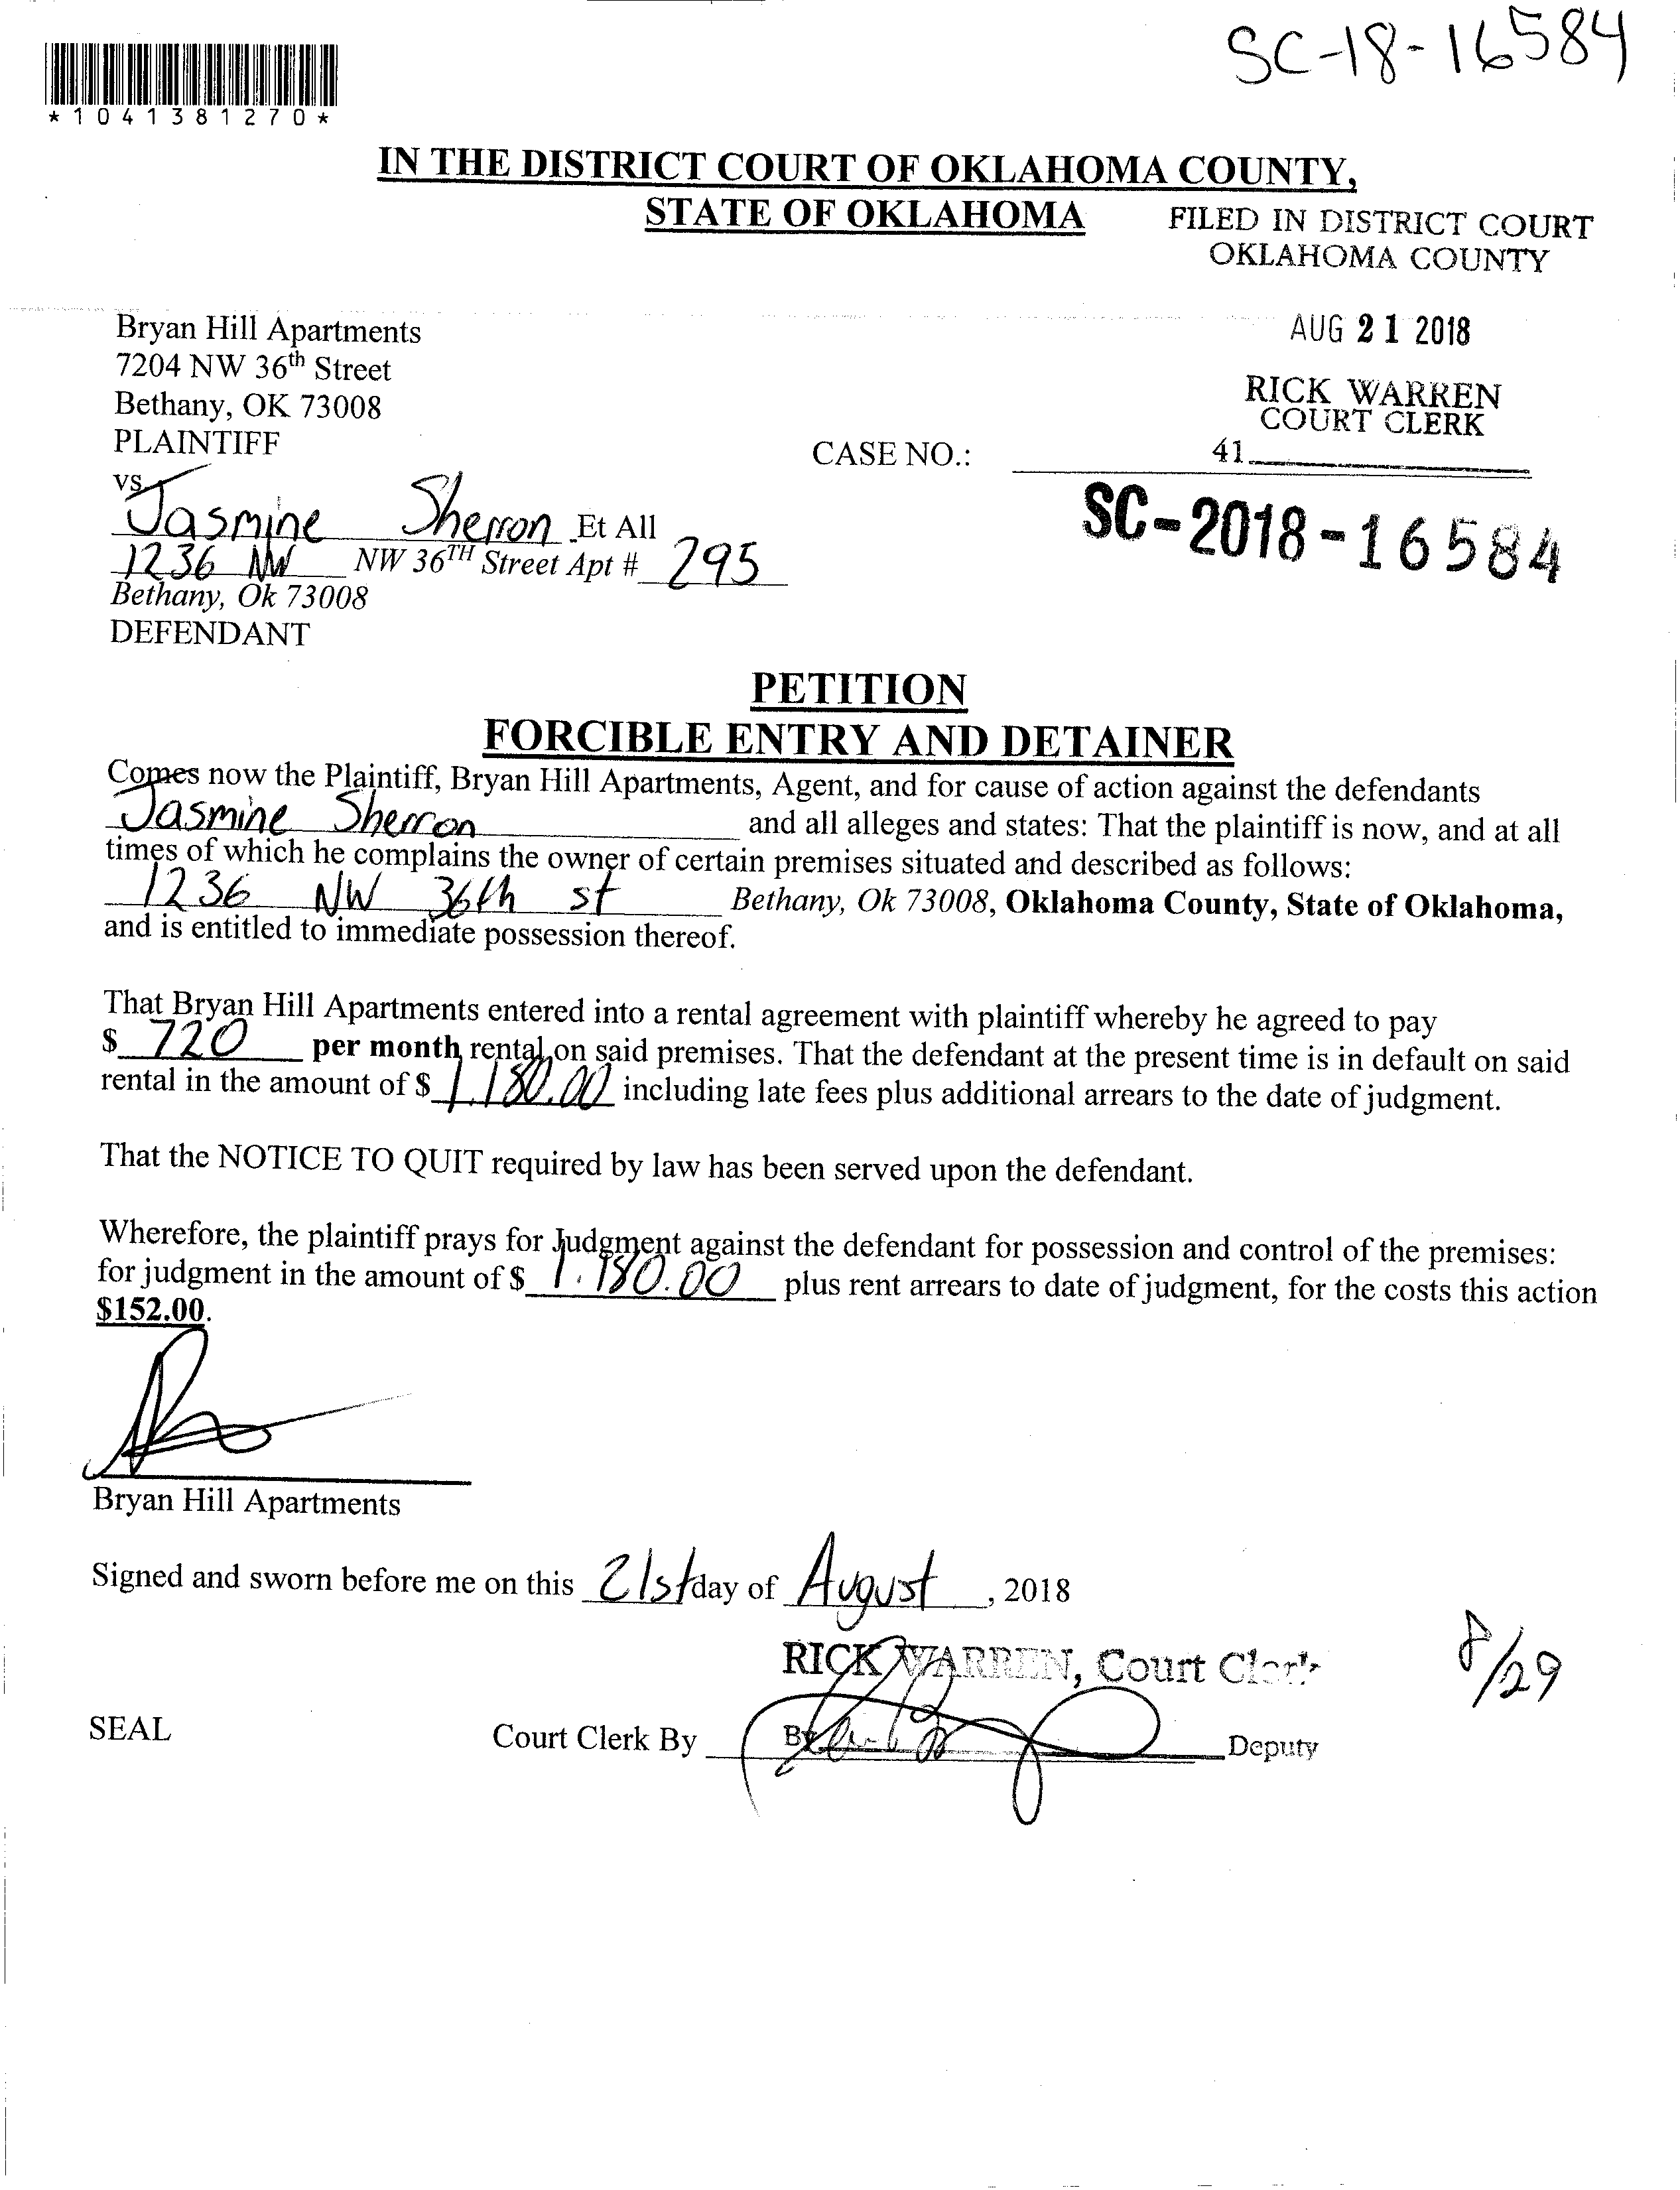 SC-18-16584
*1041381270*
IN THE DISTRICT COURT OF OKLAHOMA COUNTY,
STATE OF OKLAHOMA
FILED IN DISTRICT COURT
OKLAHOMA COUNTY
Bryan Hill Apartments
AUG 21 2018
7204 NW 36th Street
Bethany, OK 73008
RICK WARREN
COURT CLERK
PLAINTIFF
CASE NO.:
41
vs.
SC-2018-16584
Jasmine Sherron Et All
1236 NW NW 36TH Street Apt # 295
Bethany, Ok 73008
DEFENDANT
PETITION
FORCIBLE ENTRY AND DETAINER
Comes now the Plaintiff, Bryan Hill Apartments, Agent, and for cause of action against the defendants
Jasmine Sherron and all alleges and states: That the plaintiff is now, and at all
times of which he complains the owner of certain premises situated and described as follows:
1236 NW 36th st Bethany, Ok 73008, Oklahoma County, State of Oklahoma,
and is entitled to immediate possession thereof.
That Bryan Hill Apartments entered into a rental agreement with plaintiff whereby he agreed to pay
$ 720 per month rental on said premises. That the defendant at the present time is in default on said
rental in the amount of $ 1,180.00 including late fees plus additional arrears to the date of judgment.
That the NOTICE TO QUIT required by law has been served upon the defendant.
Wherefore, the plaintiff prays for Judgment against the defendant for possession and control of the premises:
for judgment in the amount of $ 1.180.00 plus rent arrears to date of judgment, for the costs this action
$152.00.
Bryan Hill Apartments
Signed and sworn before me on this 21st day of August, 2018
RICK WARREN, Court Clerk
8/29
SEAL
Court Clerk By
By
Deputy